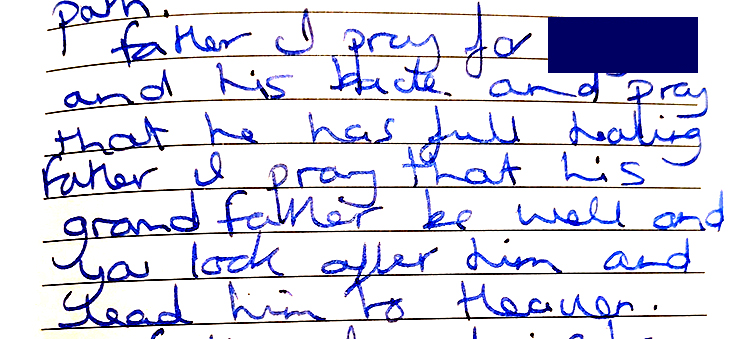 path.
father I pray for
and his and pray
that he has full healing
father I pray that his
grandfather be well and
you look after him and
lead him to Heaven.